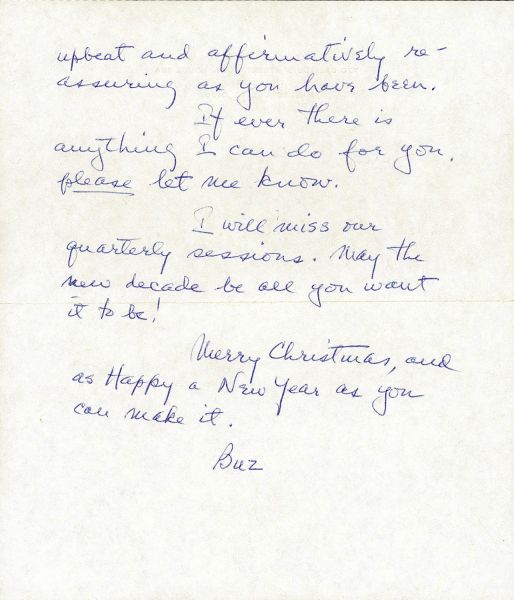 upbeat and affirmatively re-
assuring as you have been.
If ever there is
anything I can do for you,
please let me know.
I will miss our
quarterly sessions. May the
new decade be all you want
it to be!
Merry Christmas, and
as Happy a New Year as you
can make it.
Buz